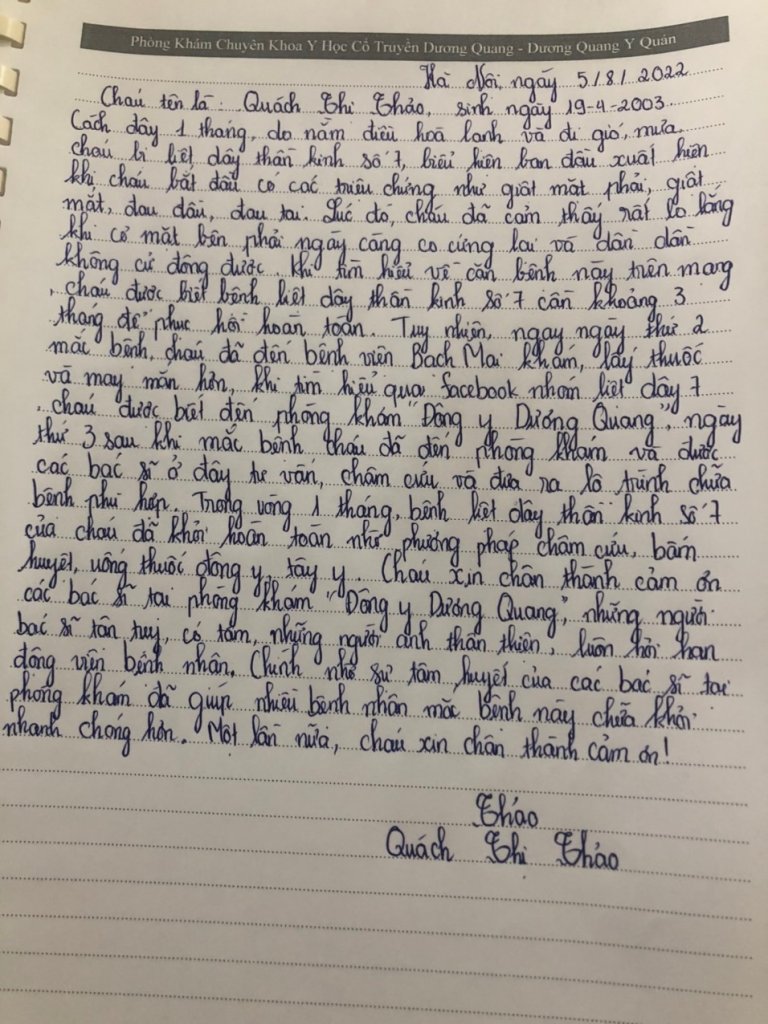 Phòng Khám Chuyên Khoa Y Học Cổ Truyền Dương Quang - Dương Quang Y Quán
Hà Nội, ngày 5/8/2022
Cháu tên là: Quách Thị Thảo, sinh ngày 19-4-2003
Cách đây 1 tháng, do nằm điều hoà lạnh và đi gió, mưa,
cháu bị liệt dây thần kinh số 7, biểu hiện ban đầu xuất hiện
khi cháu bắt đầu có các triệu chứng như giật mắt phải, giật
mặt, đau đầu, đau tai. Lúc đó, cháu đã cảm thấy rất lo lắng
khi cơ mặt bên phải ngày càng co cứng lại và dần dần
không cử động được. Khi tìm hiểu về căn bệnh này trên mạng
, cháu được biết bệnh liệt dây thần kinh số 7 cần khoảng 3
tháng để phục hồi hoàn toàn. Tuy nhiên, ngay ngày thứ 2
mắc bệnh, cháu đã đến bệnh viện Bạch Mai khám, lấy thuốc
và may mắn hơn, khi tìm hiểu qua facebook nhóm liệt dây 7
, cháu được biết đến phòng khám "Đông y Dương Quang", ngày
thứ 3 sau khi mắc bệnh cháu đã đến phòng khám và được
các bác sĩ ở đây tư vấn, châm cứu và đưa ra lộ trình chữa
bệnh phù hợp. Trong vòng 1 tháng, bệnh liệt dây thần kinh số 7
của cháu đã khỏi hoàn toàn nhờ phương pháp châm cứu, bấm
huyệt, uống thuốc đông y, tây y. Cháu xin chân thành cảm ơn
các bác sĩ tại phòng khám "Đông y Dương Quang", những người
bác sĩ tận tuỵ, có tâm, những người anh thân thiện, luôn hỏi han
động viên bệnh nhân. Chính nhờ sự tâm huyết của các bác sĩ tại
phòng khám đã giúp nhiều bệnh nhân mắc bệnh này chữa khỏi
nhanh chóng hơn. Một lần nữa, cháu xin chân thành cảm ơn!
Thảo
Quách Thị Thảo